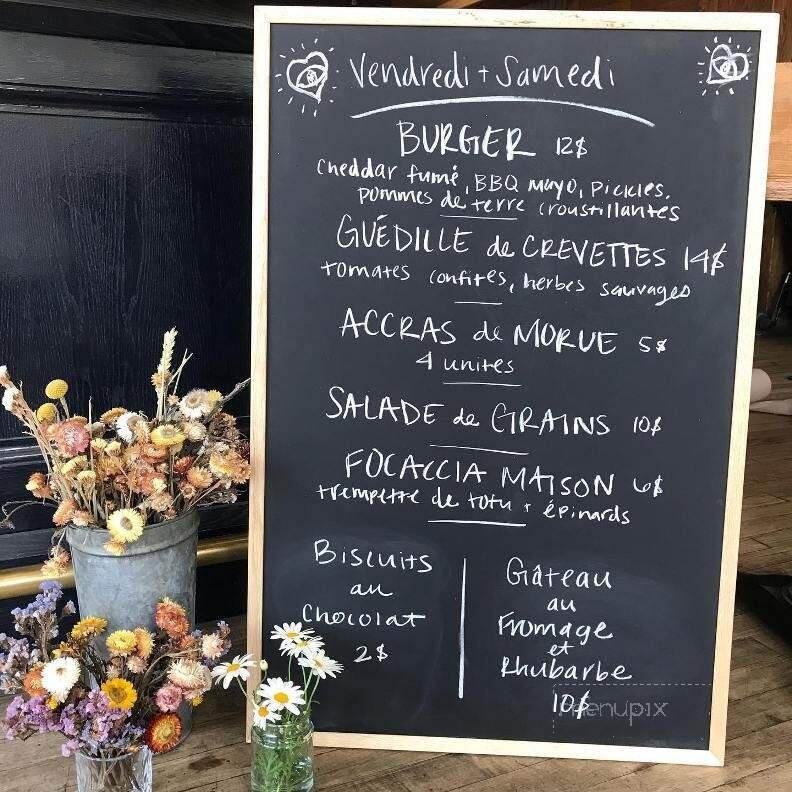 Vendredi + Samedi
BURGER 12$
Cheddar fumé, BBQ mayo, pickles,
pommes de terre croustillantes
GUÉDILLE de CREVETTES 14$
tomates confites, herbes sauvages
ACCRAS de MORUE 5$
4 unités
SALADE de GRAINS 10$
FOCACCIA MAISON 6$
trempette de tofu + épinards
Biscuits
au
Chocolat
2$
Gâteau
au
Fromage
et
Rhubarbe
10$
menupix